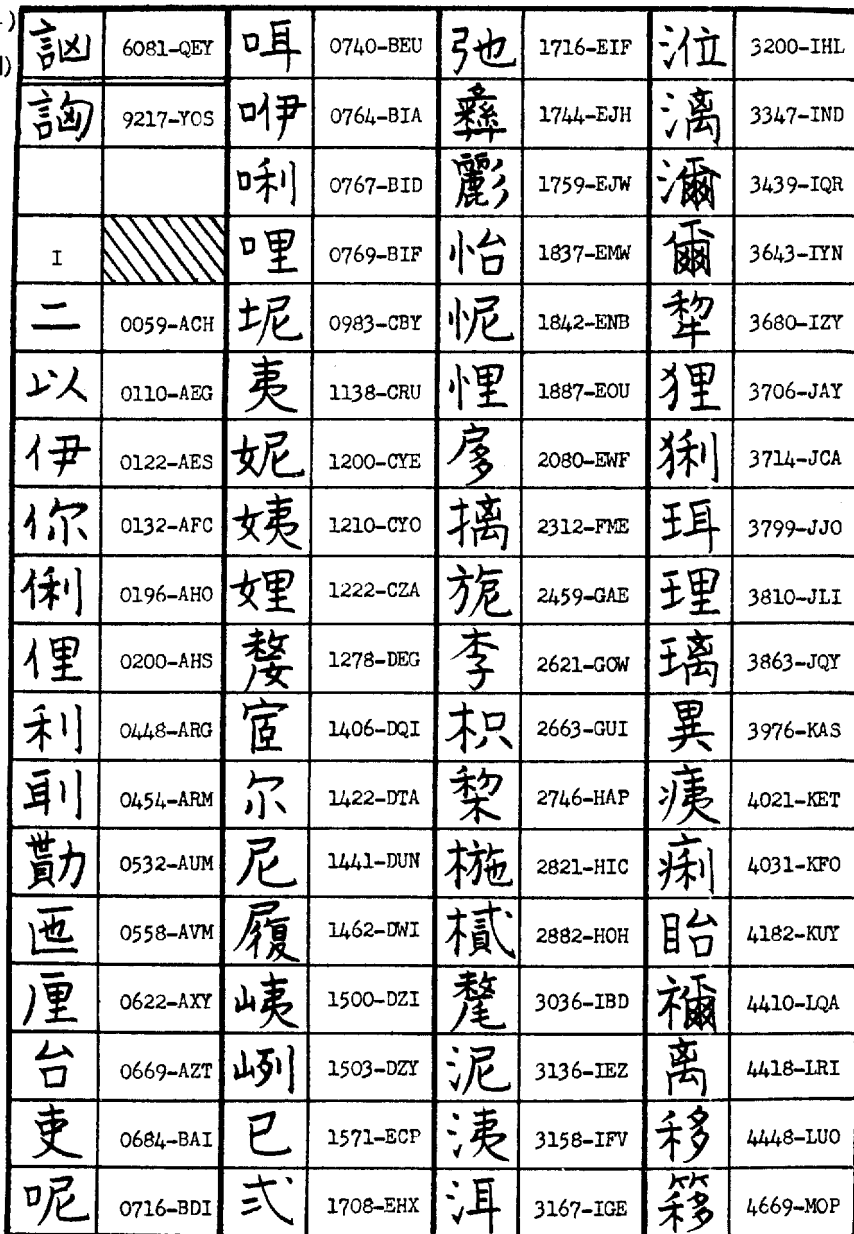 訩 6081-QEY 咡 0740-BEU 弛 1716-EIF 涖 3200-IHL
詾 9217-YOS 咿 0764-BIA 彝 1744-EJH 漓 3347-IND
唎 0767-BID 彲 1759-EJW 濔 3439-IQR
I 哩 0769-BIF 怡 1837-EMW 爾 3643-IYN
二 0059-ACH 坭 0983-CBY 怩 1842-ENB 犂 3680-IZY
以 0110-AEG 夷 1138-CRU 悝 1887-EOU 狸 3706-JAY
伊 0122-AES 妮 1200-CYE 扅 2080-EWF 猁 3714-JCA
你 0132-AFC 姨 1210-CYO 摛 2312-FME 珥 3799-JJO
俐 0196-AHO 娌 1222-CZA 旎 2459-GAE 理 3810-JLI
俚 0200-AHS 嫠 1278-DEG 李 2621-GOW 璃 3863-JQY
利 0448-ARG 宧 1406-DQI 枳 2663-GUI 異 3976-KAS
刵 0454-ARM 尔 1422-DTA 棃 2746-HAP 痍 4021-KET
勩 0532-AUM 尼 1441-DUN 椸 2821-HIC 痢 4031-KFO
匜 0558-AVM 履 1462-DWI 樲 2882-HOH 眙 4182-KUY
厘 0622-AXY 峓 1500-DZI 氂 3036-IBD 禰 4410-LQA
台 0669-AZT 峛 1503-DZY 泥 3136-IEZ 离 4418-LRI
吏 0684-BAI 已 1571-ECP 洟 3158-IFV 移 4448-LUO
呢 0716-BDI 弍 1708-EHX 洱 3167-IGE 簃 4669-MOP